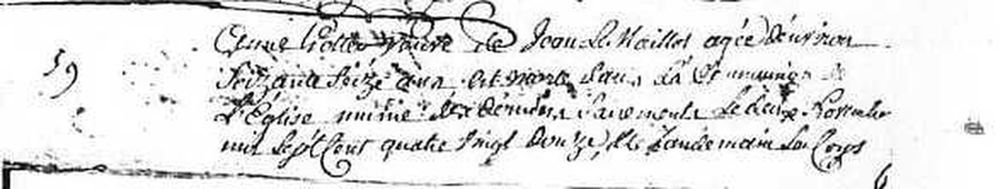 59
veuve de Jean Le Maillot agée d'environ
soixante seize ans est morte dans la Communion de
L'Eglise munie des derniers sacrements Le deux Novembre
mil sept Cent quatre vingt douze, et le landemain son Corps